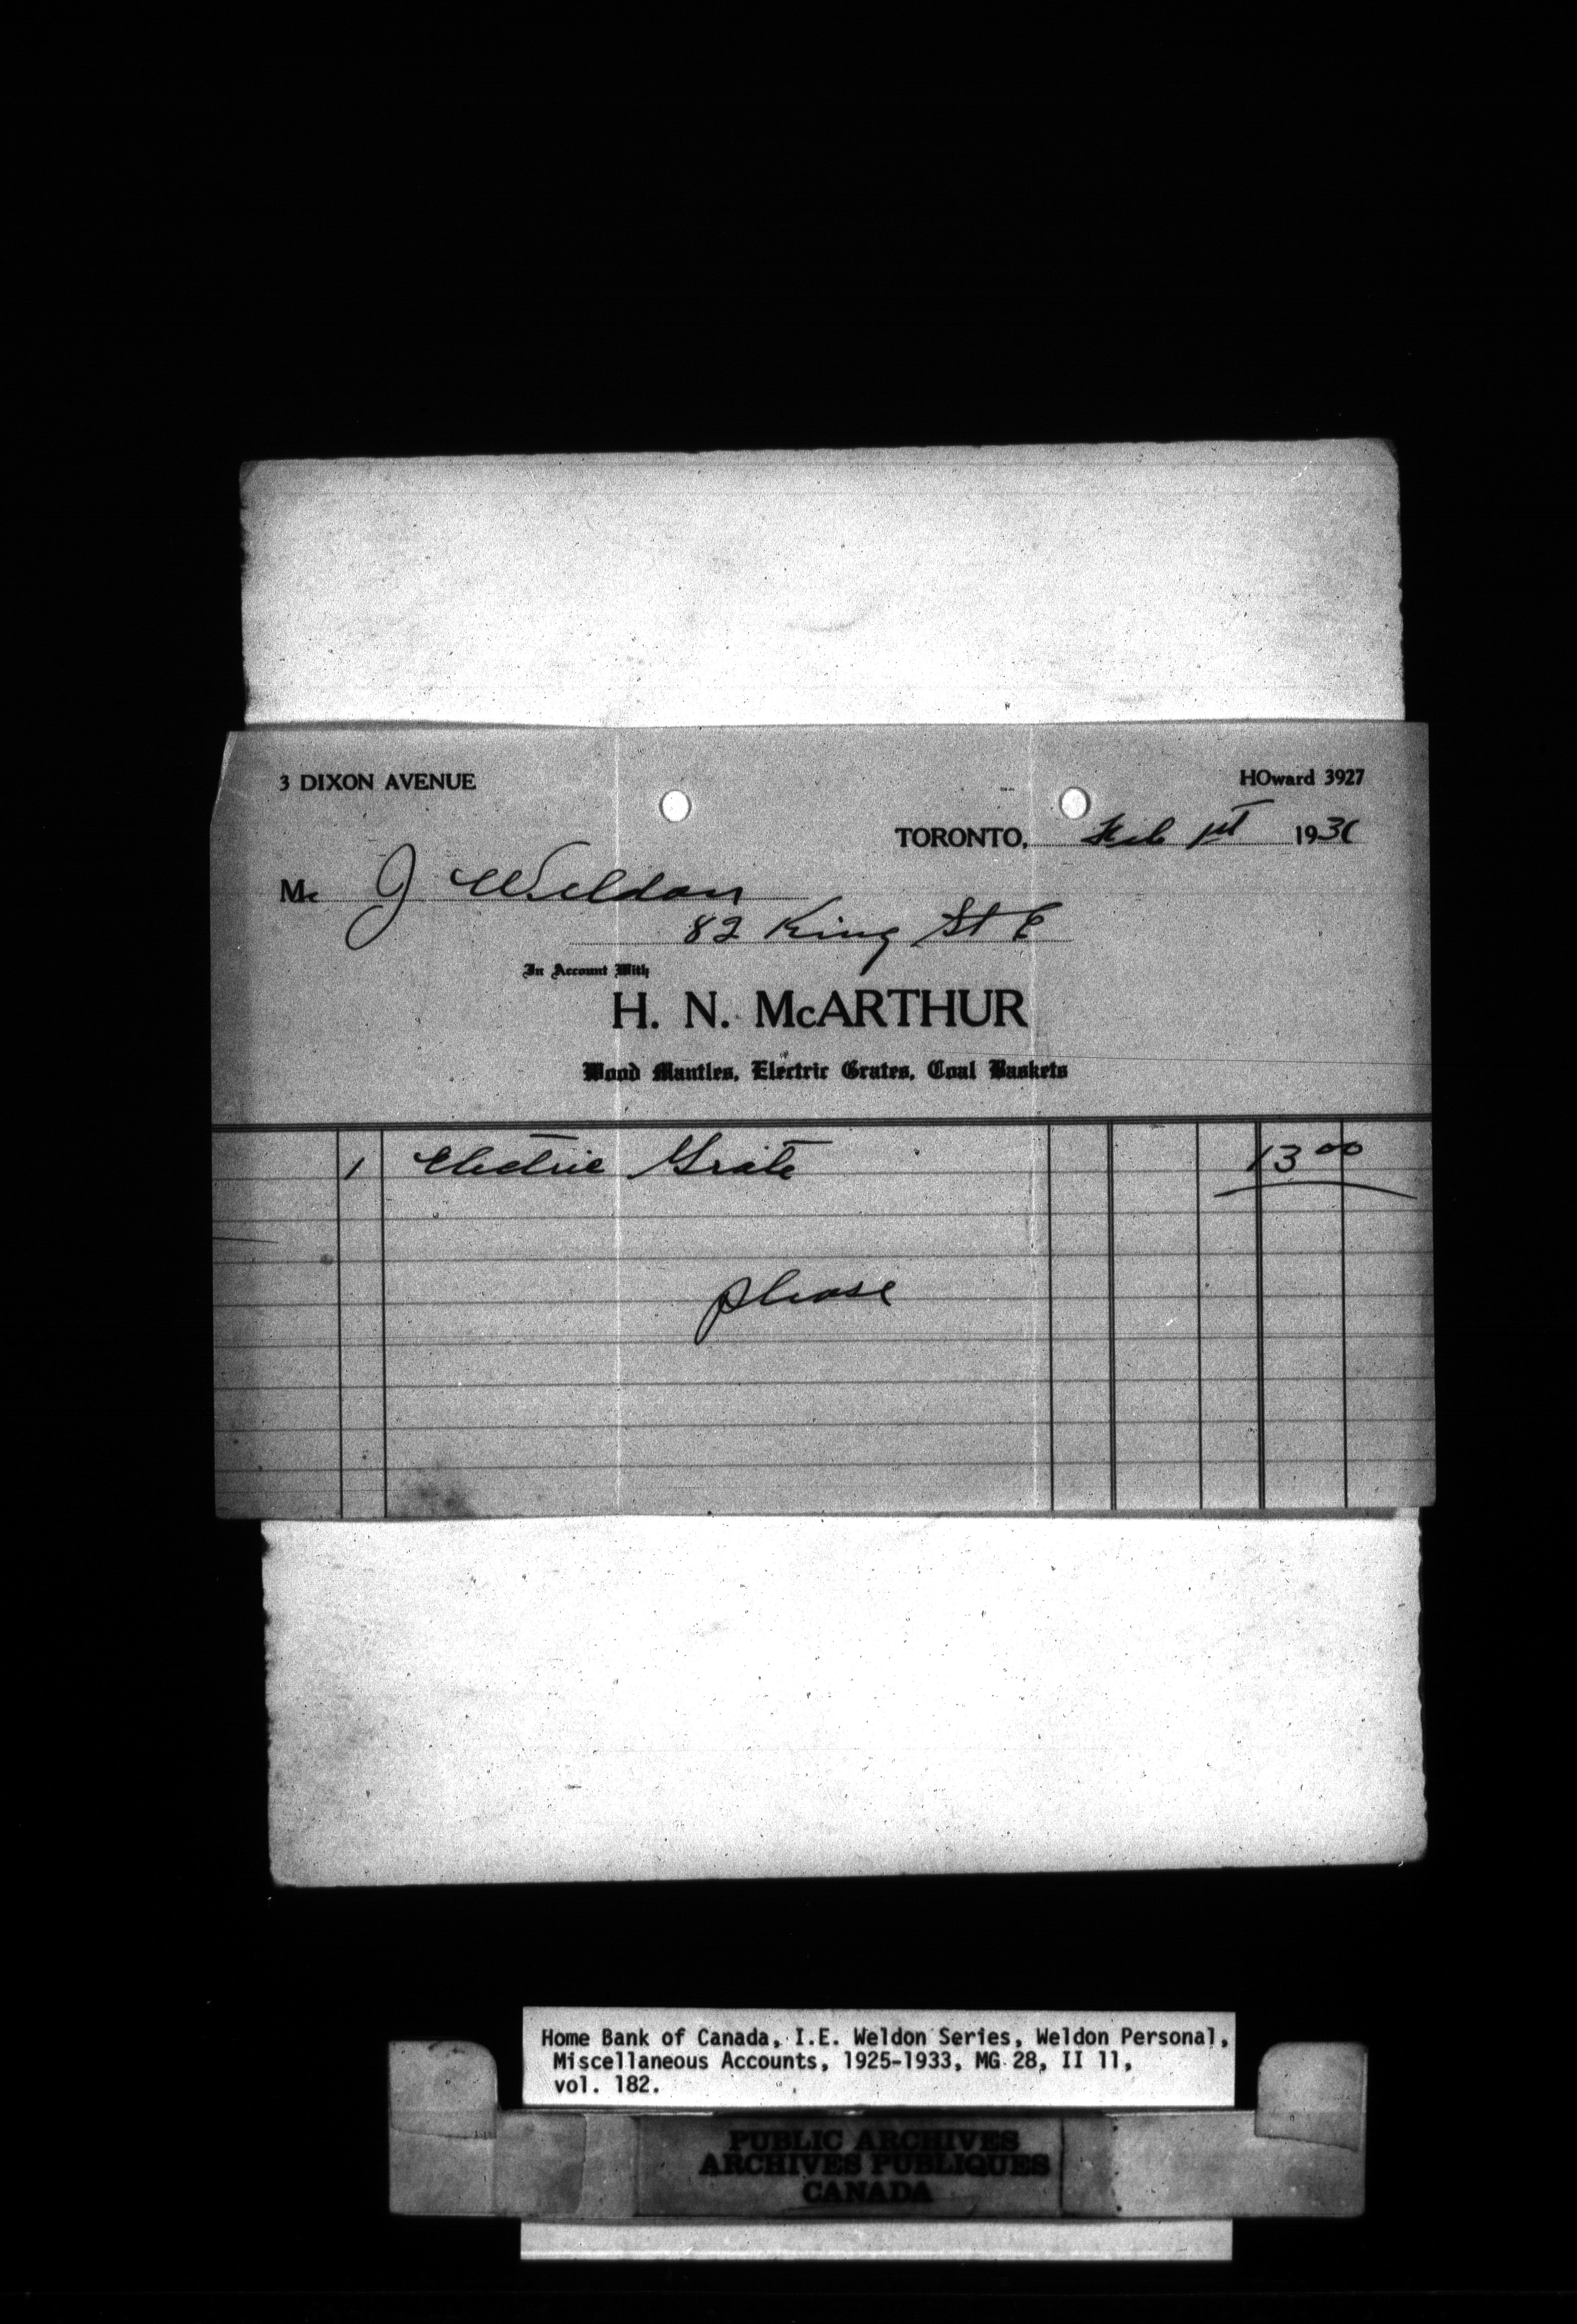 3 DIXON AVENUE HOward 3927
TORONTO, Feb 1st 1931
Mr J Weldon
82 King St E
In Account With
H. N. McARTHUR
Wood Mantles, Electric Grates, Coal Baskets
1 Electric Grate 13 00
please
Home Bank of Canada, I.E. Weldon Series, Weldon Personal,
Miscellaneous Accounts, 1925-1933, MG 28, II 11,
vol. 182.
PUBLIC ARCHIVES
ARCHIVES PUBLIQUES
CANADA